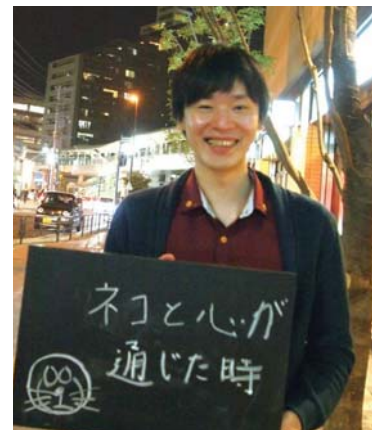 ネコと心が
通じた時